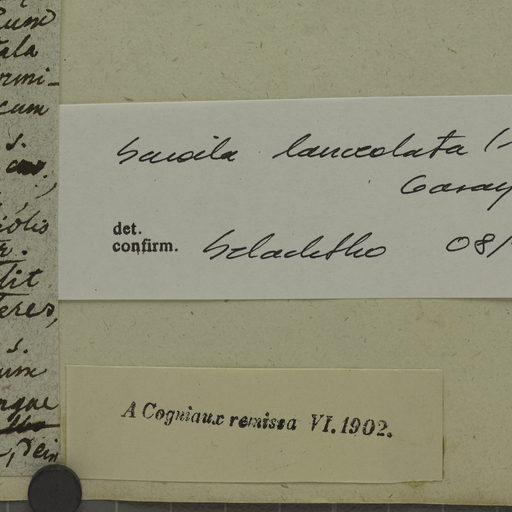 rum
tala
ormi-
cum
s.
iolis
tit
teres,
s.
um
Sacoila lanceolata (
Garay
det.
confirm. Szlachetko 08/
A Cogniaux remissa VI. 1902.